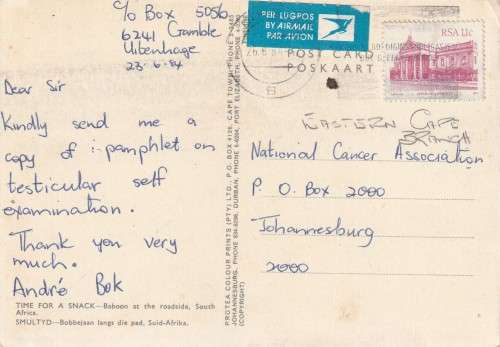 c/o Box 5056
6241 Gamble
Uitenhage
23-6-84
Dear Sir
Kindly send me a
copy of :- pamphlet on
testicular self
examination.
Thank you very
much.
André Bok
TIME FOR A SNACK—Baboon at the roadside, South
Africa.
SMULTYD—Bobbejaan langs die pad, Suid-Afrika.
PROTEA COLOUR PRINTS (PTY) LTD., P.O. BOX 4129, CAPE TOWN, PHONE
JOHANNESBURG, PHONE 834-6096, DURBAN, PHONE PORT ELIZABETH, PHONE
(COPYRIGHT)
PER LUGPOS
BY AIRMAIL
PAR AVION
POST CARD
POSKAART
RSA 11c
EASTERN CAPE
BRANCH
National Cancer Association
P. O. Box 2000
Johannesburg
2000